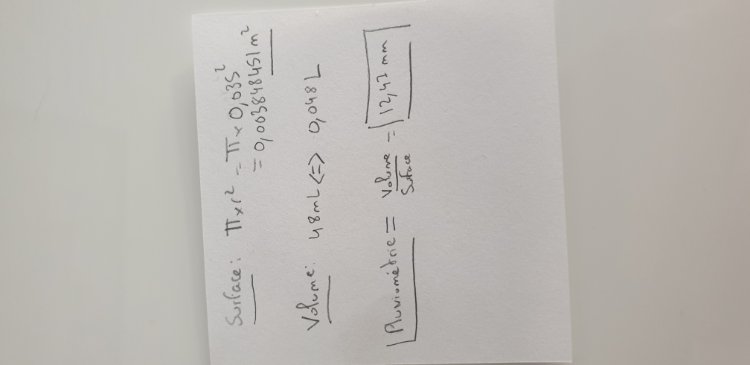 Surface: π x r² = π x 0,035²
= 0,003848451 m²
Volume: 48 mL <=> 0,048 L
Pluviométrie = Volume / Surface = 12,47 mm